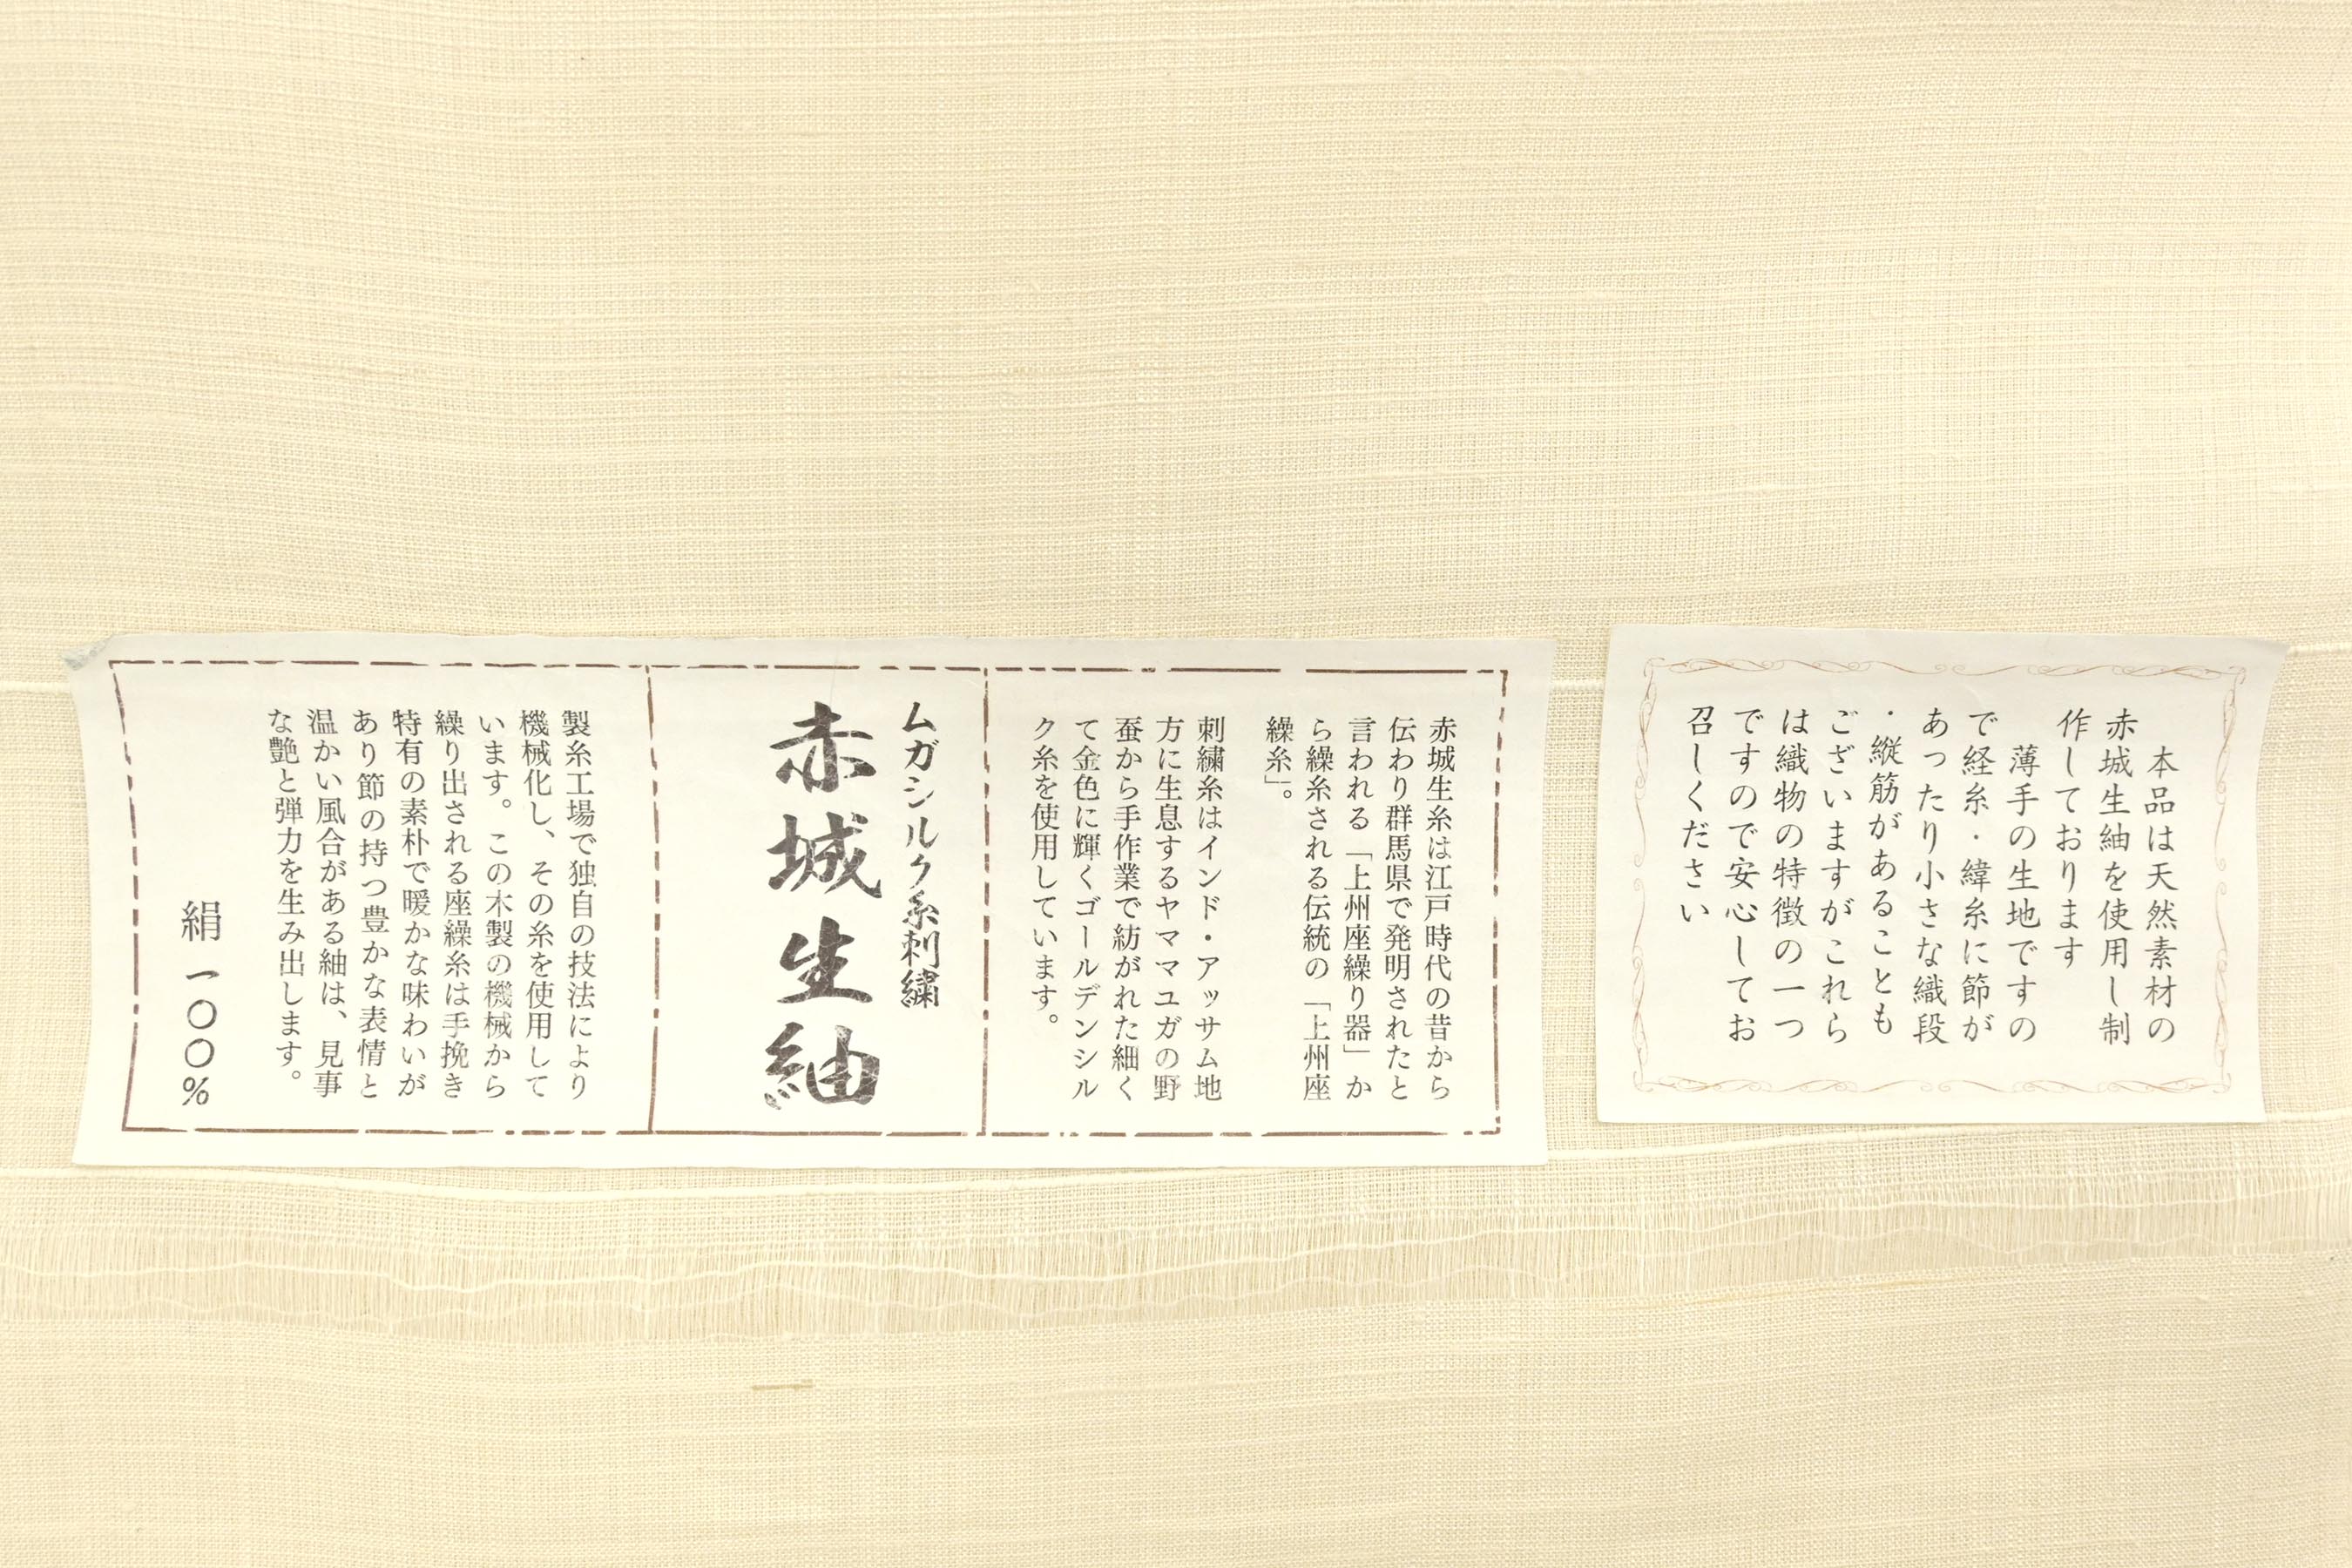 本品は天然素材の
赤城生紬を使用し制
作しております
薄手の生地ですの
で経糸・緯糸に節が
あったり小さな織段
・縦筋があることも
ございますがこれら
は織物の特徴の一つ
ですので安心してお
召しください
赤城生糸は江戸時代の昔から
伝わり群馬県で発明されたと
言われる「上州座繰り器」か
ら繰糸される伝統の「上州座
繰糸」。
刺繍糸はインド・アッサム地
方に生息するヤママユガの野
蚕から手作業で紡がれた細く
て金色に輝くゴールデンシル
ク糸を使用しています。
ムガシルク糸刺繍
赤城生紬
製糸工場で独自の技法により
機械化し、その糸を使用して
います。この木製の機械から
繰り出される座繰糸は手挽き
特有の素朴で暖かな味わいが
あり節の持つ豊かな表情と
温かい風合がある紬は、見事
な艶と弾力を生み出します。
絹一〇〇%